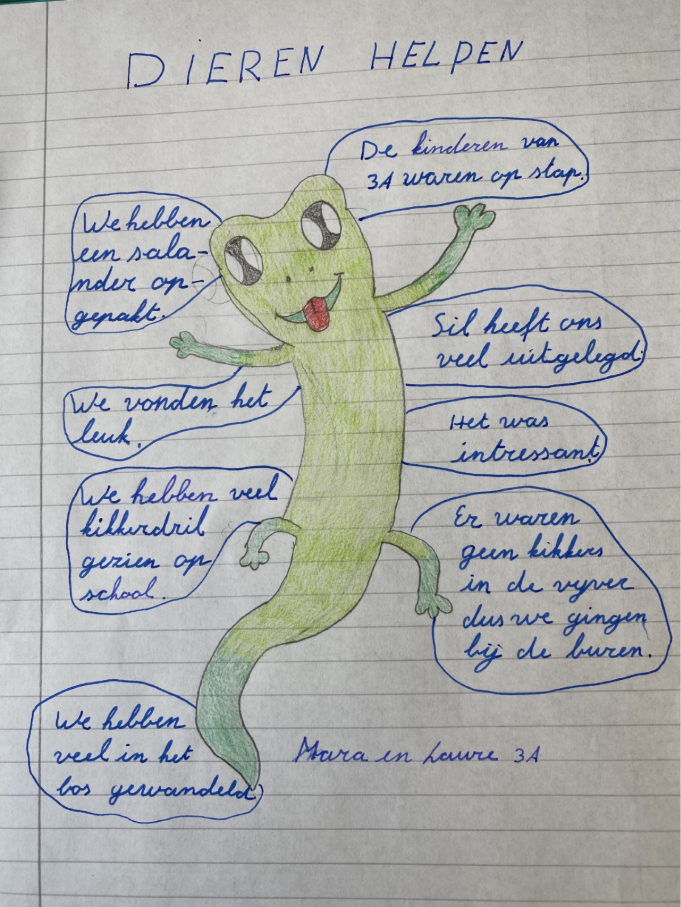 DIEREN HELPEN
De kinderen van
3A waren op stap.
We hebben
een sala-
nder op-
gepakt.
Sil heeft ons
veel uitgelegd.
We vonden het
leuk.
Het was
intressant.
We hebben veel
kikkerdril
gezien op
school.
Er waren
geen kikkers
in de vyver
dus we gingen
bij de buren.
We hebben
veel in het
bos gewandeld
Mara en Laure 3A